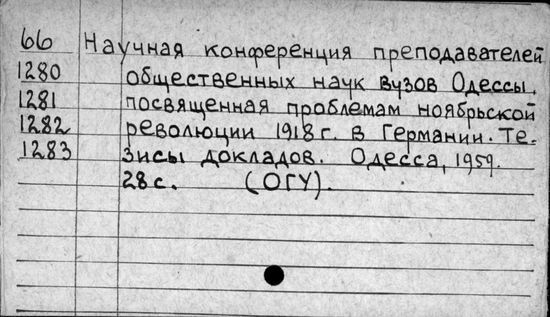 66 Научная конференция преподавателей
1280 общественных наук вузов Одессы,
1281 посвященная проблемам ноябрьской
1282 революции 1918 г. в Германии. Те-
1283 зисы докладов. Одесса, 1959.
28 с. (ОГУ).